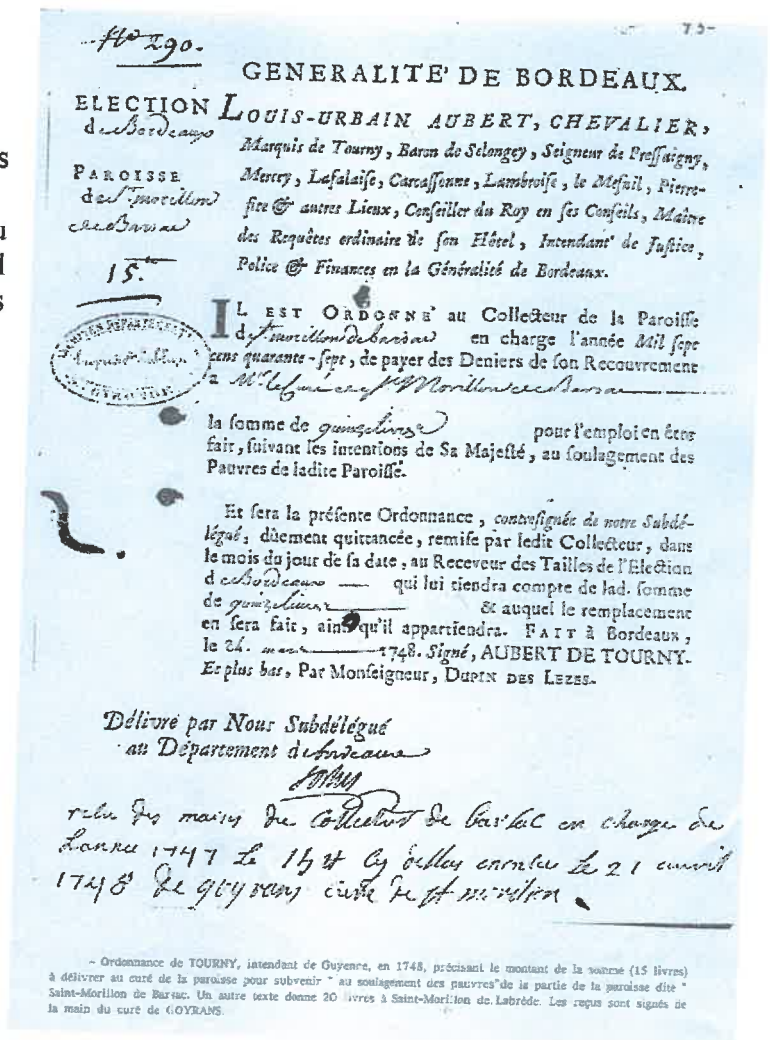 No 290.
73-
GENERALITE' DE BORDEAUX.
ELECTION
de Bordeaux
PAROISSE
de St. morillon
de Barsac
15.tt
LOUIS-URBAIN AUBERT, CHEVALIER,
Marquis de Tourny, Baron de Selongey, Seigneur de Pressaigny,
Mercey, Lafalaise, Carcassonne, Lambroise, le Mesnil, Pierre-
fite & autres Lieux, Conseiller du Roy en ses Conseils, Maître
des Requêtes ordinaire de son Hôtel, Intendant de Justice,
Police & Finances en la Généralité de Bordeaux.
IL EST ORDONNE' au Collecteur de la Paroisse
de St. morillon de barsac en charge l'année Mil sept
cens quarante-sept, de payer des Deniers de son Recouvrement
a Mr. le Curé de St Morillon de Barsac
la somme de quinze livres pour l'emploi en être
fait, suivant les intentions de Sa Majesté, au soulagement des
Pauvres de ladite Paroisse.
Et sera la présente Ordonnance, contresignée de notre Subdé-
légué, dûement quittancée, remise par ledit Collecteur, dans
le mois du jour de sa date, au Receveur des Tailles de l'Election
de Bordeaux qui lui tiendra compte de lad. somme
de quinze livres & auquel le remplacement
en sera fait, ainsi qu'il appartiendra. FAIT à Bordeaux,
le 24. mars 1748. Signé, AUBERT DE TOURNY.
Et plus bas, Par Monseigneur, DUPIN DES LEZES.
Délivré par Nous Subdélégué
au Département de bordeaux
des mains du Collecteur de barsac en charge de
Lannee 1747 le 15 tt cy dessus le 21 avril
1748 de goyrans curé de st morillon.
- Ordonnance de TOURNY, intendant de Guyenne, en 1748, précisant le montant de la somme (15 livres)
à délivrer au curé de la paroisse pour subvenir " au soulagement des pauvres"de la partie de la paroisse dite "
Saint-Morillon de Barsac. Un autre texte donne 20 livres à Saint-Morillon de Labrède. Les reçus sont signés de
la main du curé de GOYRANS.